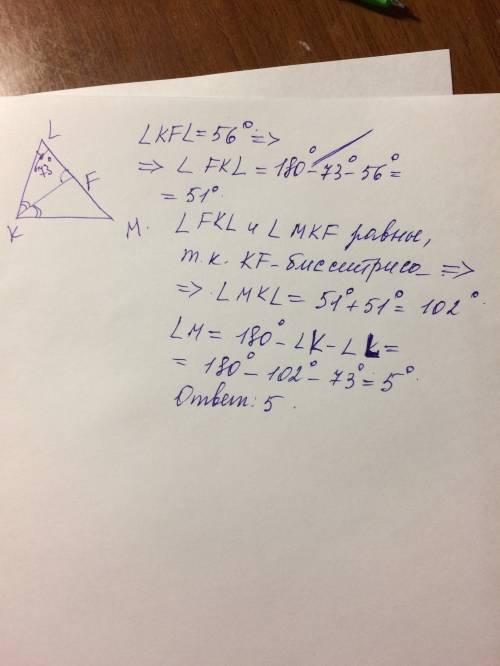 L
73°
F
K
M.
∠KFL = 56° =>
=> ∠ FKL = 180° - 73° - 56° =
= 51°.
∠ FKL и ∠ MKF равны,
т.к. KF - биссектриса =>
=> ∠ MKL = 51° + 51° = 102°
∠M = 180° - ∠K - ∠ L =
= 180° - 102° - 73° = 5°.
Ответ: 5.